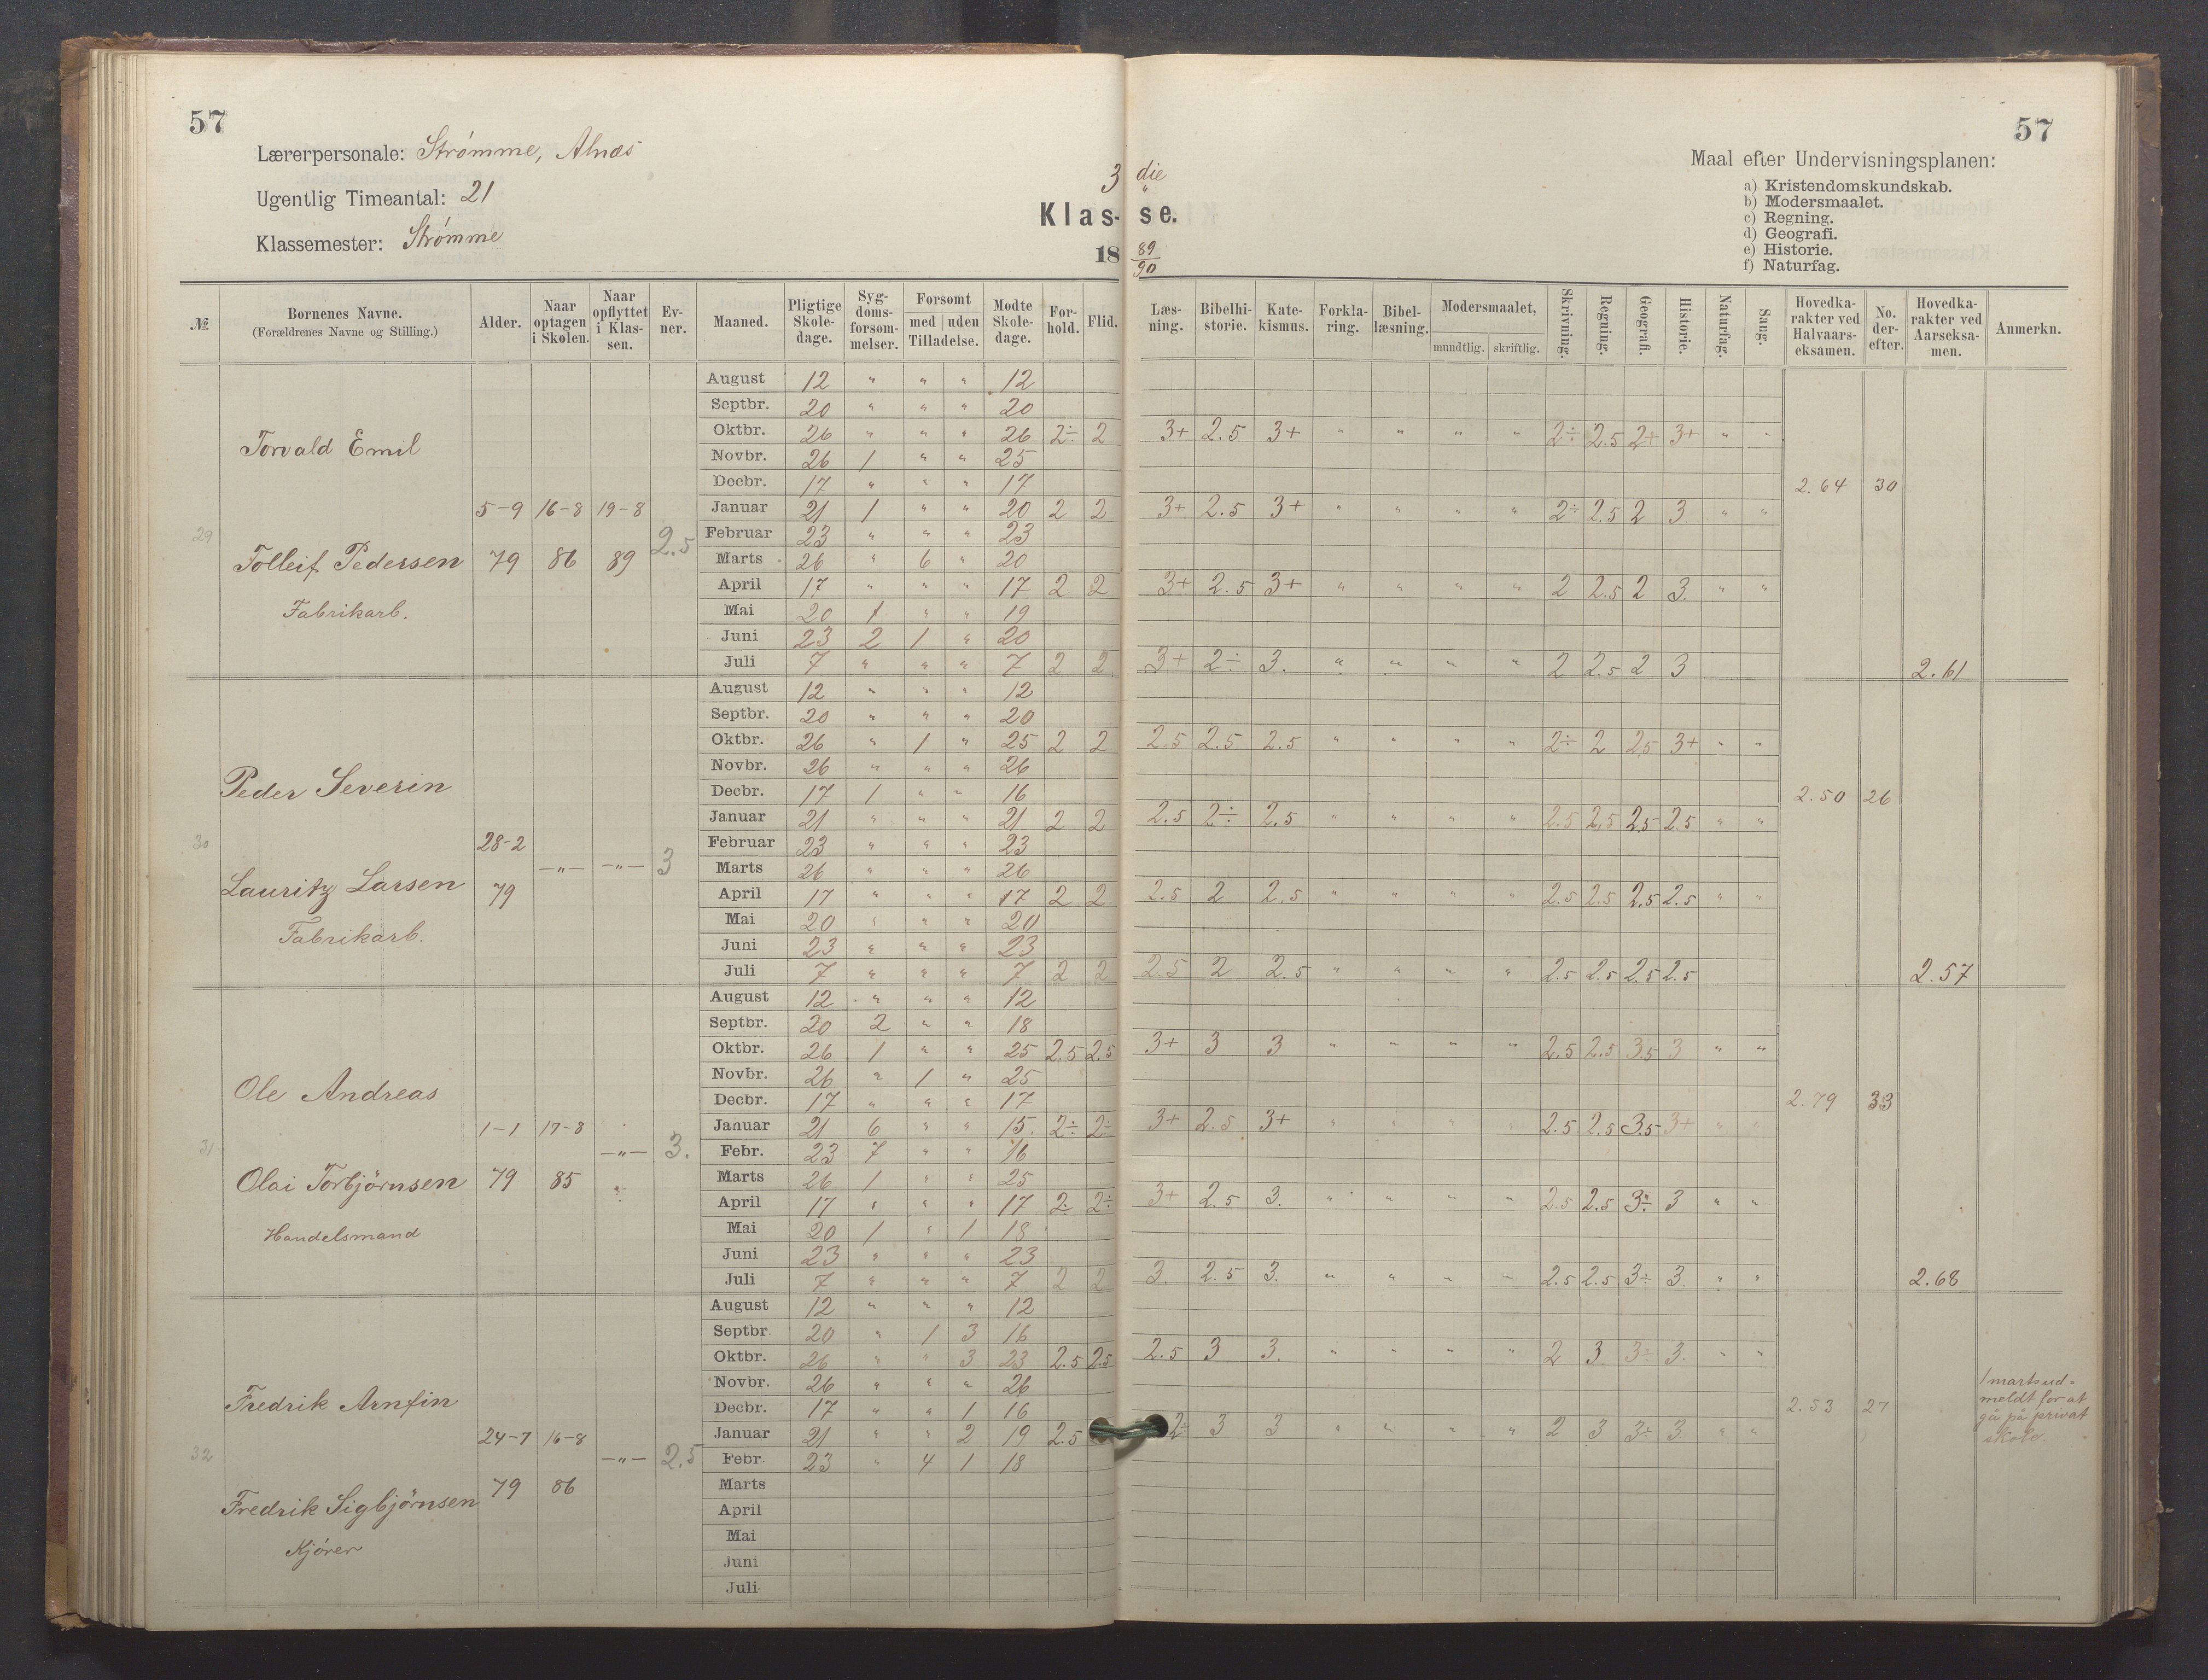 57
57
Lærerpersonale: Strømme, Alnæs
Ugentlig Timeantal: 21
Klassemester: Strømme
3 die
Klas- se.
18 89/90
Maal efter Undervisningsplanen:
a) Kristendomskundskab.
b) Modersmaalet.
c) Regning.
d) Geografi.
e) Historie.
f) Naturfag.
№ Børnenes Navne. (Forældrenes Navne og Stilling.) Alder. Naar optagen i Skolen. Naar opflyttet i Klassen. Evner. Maaned. Pligtige Skoledage. Sygdomsforsømmelser. Forsømt med uden Tilladelse. Mødte Skoledage. Forhold. Flid. Læsning. Bibelhistorie. Katekismus. Forklaring. Bibellæsning. Modersmaalet, mundtlig. skriftlig. Skrivning. Regning. Geografi. Historie. Naturfag. Sang. Hovedkarakter ved Halvaarseksamen. No. derefter. Hovedkarakter ved Aarseksamen. Anmerkn.
29 Torvald Emil
Tolleif Pedersen
Fabrikarb.
5-9 79 16-8 86 19-8 89 2.5
August 12 " " " 12
Septbr. 20 " " " 20
Oktbr. 26 " " " 26 2÷ 2 3+ 2.5 3+ " " " " 2÷ 2.5 2+ 3+ " "
Novbr. 26 1 " " 25
Decbr. 17 " " " 17 2.64 30
Januar 21 1 " " 20 2 2 3+ 2.5 3+ " " " " 2÷ 2.5 2 3 " "
Februar 23 " " " 23
Marts 26 " 6 " 20
April 17 " " " 17 2 2 3+ 2.5 3+ " " " " 2 2.5 2 3. " "
Mai 20 1 " " 19
Juni 23 2 1 " 20
Juli 7 " " " 7 2 2 3+ 2÷ 3. " " " " 2 2.5 2 3 2.61
30 Peder Severin
Lauritz Larsen
Fabrikarb.
28-2 79 —"— —"— 3
August 12 " " " 12
Septbr. 20 " " " 20
Oktbr. 26 " 1 " 25 2 2 2.5 2.5 2.5 " " " " 2÷ 2 2.5 3+ " "
Novbr. 26 " " " 26
Decbr. 17 1 " " 16 2.50 26
Januar 21 " " " 21 2 2 2.5 2÷ 2.5 " " " " 2.5 2.5 2.5 2.5 " "
Februar 23 " " " 23
Marts 26 " " " 26
April 17 " " " 17 2 2 2.5 2 2.5 " " " " 2.5 2.5 2.5 2.5 " "
Mai 20 " " " 20
Juni 23 " " " 23
Juli 7 " " " 7 2 2 2.5 2 2.5 " " " " 2.5 2.5 2.5 2.5 2.57
31 Ole Andreas
Olai Torbjörnsen
Handelsmand
1-1 79 17-8 85 —"— 3.
August 12 " " " 12
Septbr. 20 2 " " 18
Oktbr. 26 1 " " 25 2.5 2.5 3+ 3 3 " " " " 2.5 2.5 3.5 3 " "
Novbr. 26 " 1 " 25
Decbr. 17 " " " 17 2.79 33
Januar 21 6 " " 15. 2÷ 2÷ 3+ 2.5 3+ " " " " 2.5 2.5 3.5 3+ " "
Febr. 23 7 " " 16
Marts 26 1 " " 25
April 17 " " " 17 2÷ 2÷ 3+ 2.5 3. " " " " 2.5 2.5 3÷ 3 " "
Mai 20 1 " 1 18
Juni 23 " " " 23
Juli 7 " " " 7 2 2 3. 2.5 3. " " " " 2.5 2.5 3÷ 3. " " 2.68
32 Fredrik Arnfin
Fredrik Sigbjörnsen
Kjörer
24-7 79 16-8 86 —"— 2.5
August 12 " " " 12
Septbr. 20 " 1 3 16
Oktbr. 26 " " 3 23 2.5 2.5 2.5 3 3. " " " " 2 3. 3÷ 3. " "
Novbr. 26 " " " 26
Decbr. 17 " " 1 16 2.53 27
Januar 21 " " 2 19 2.5 2÷ 3 3 " " " " 2 3 3÷ 3. " "
Febr. 23 " 4 1 18
Marts
April
Mai
Juni
Juli
1 marts ud-
meldt for at
gå på privat
skole.